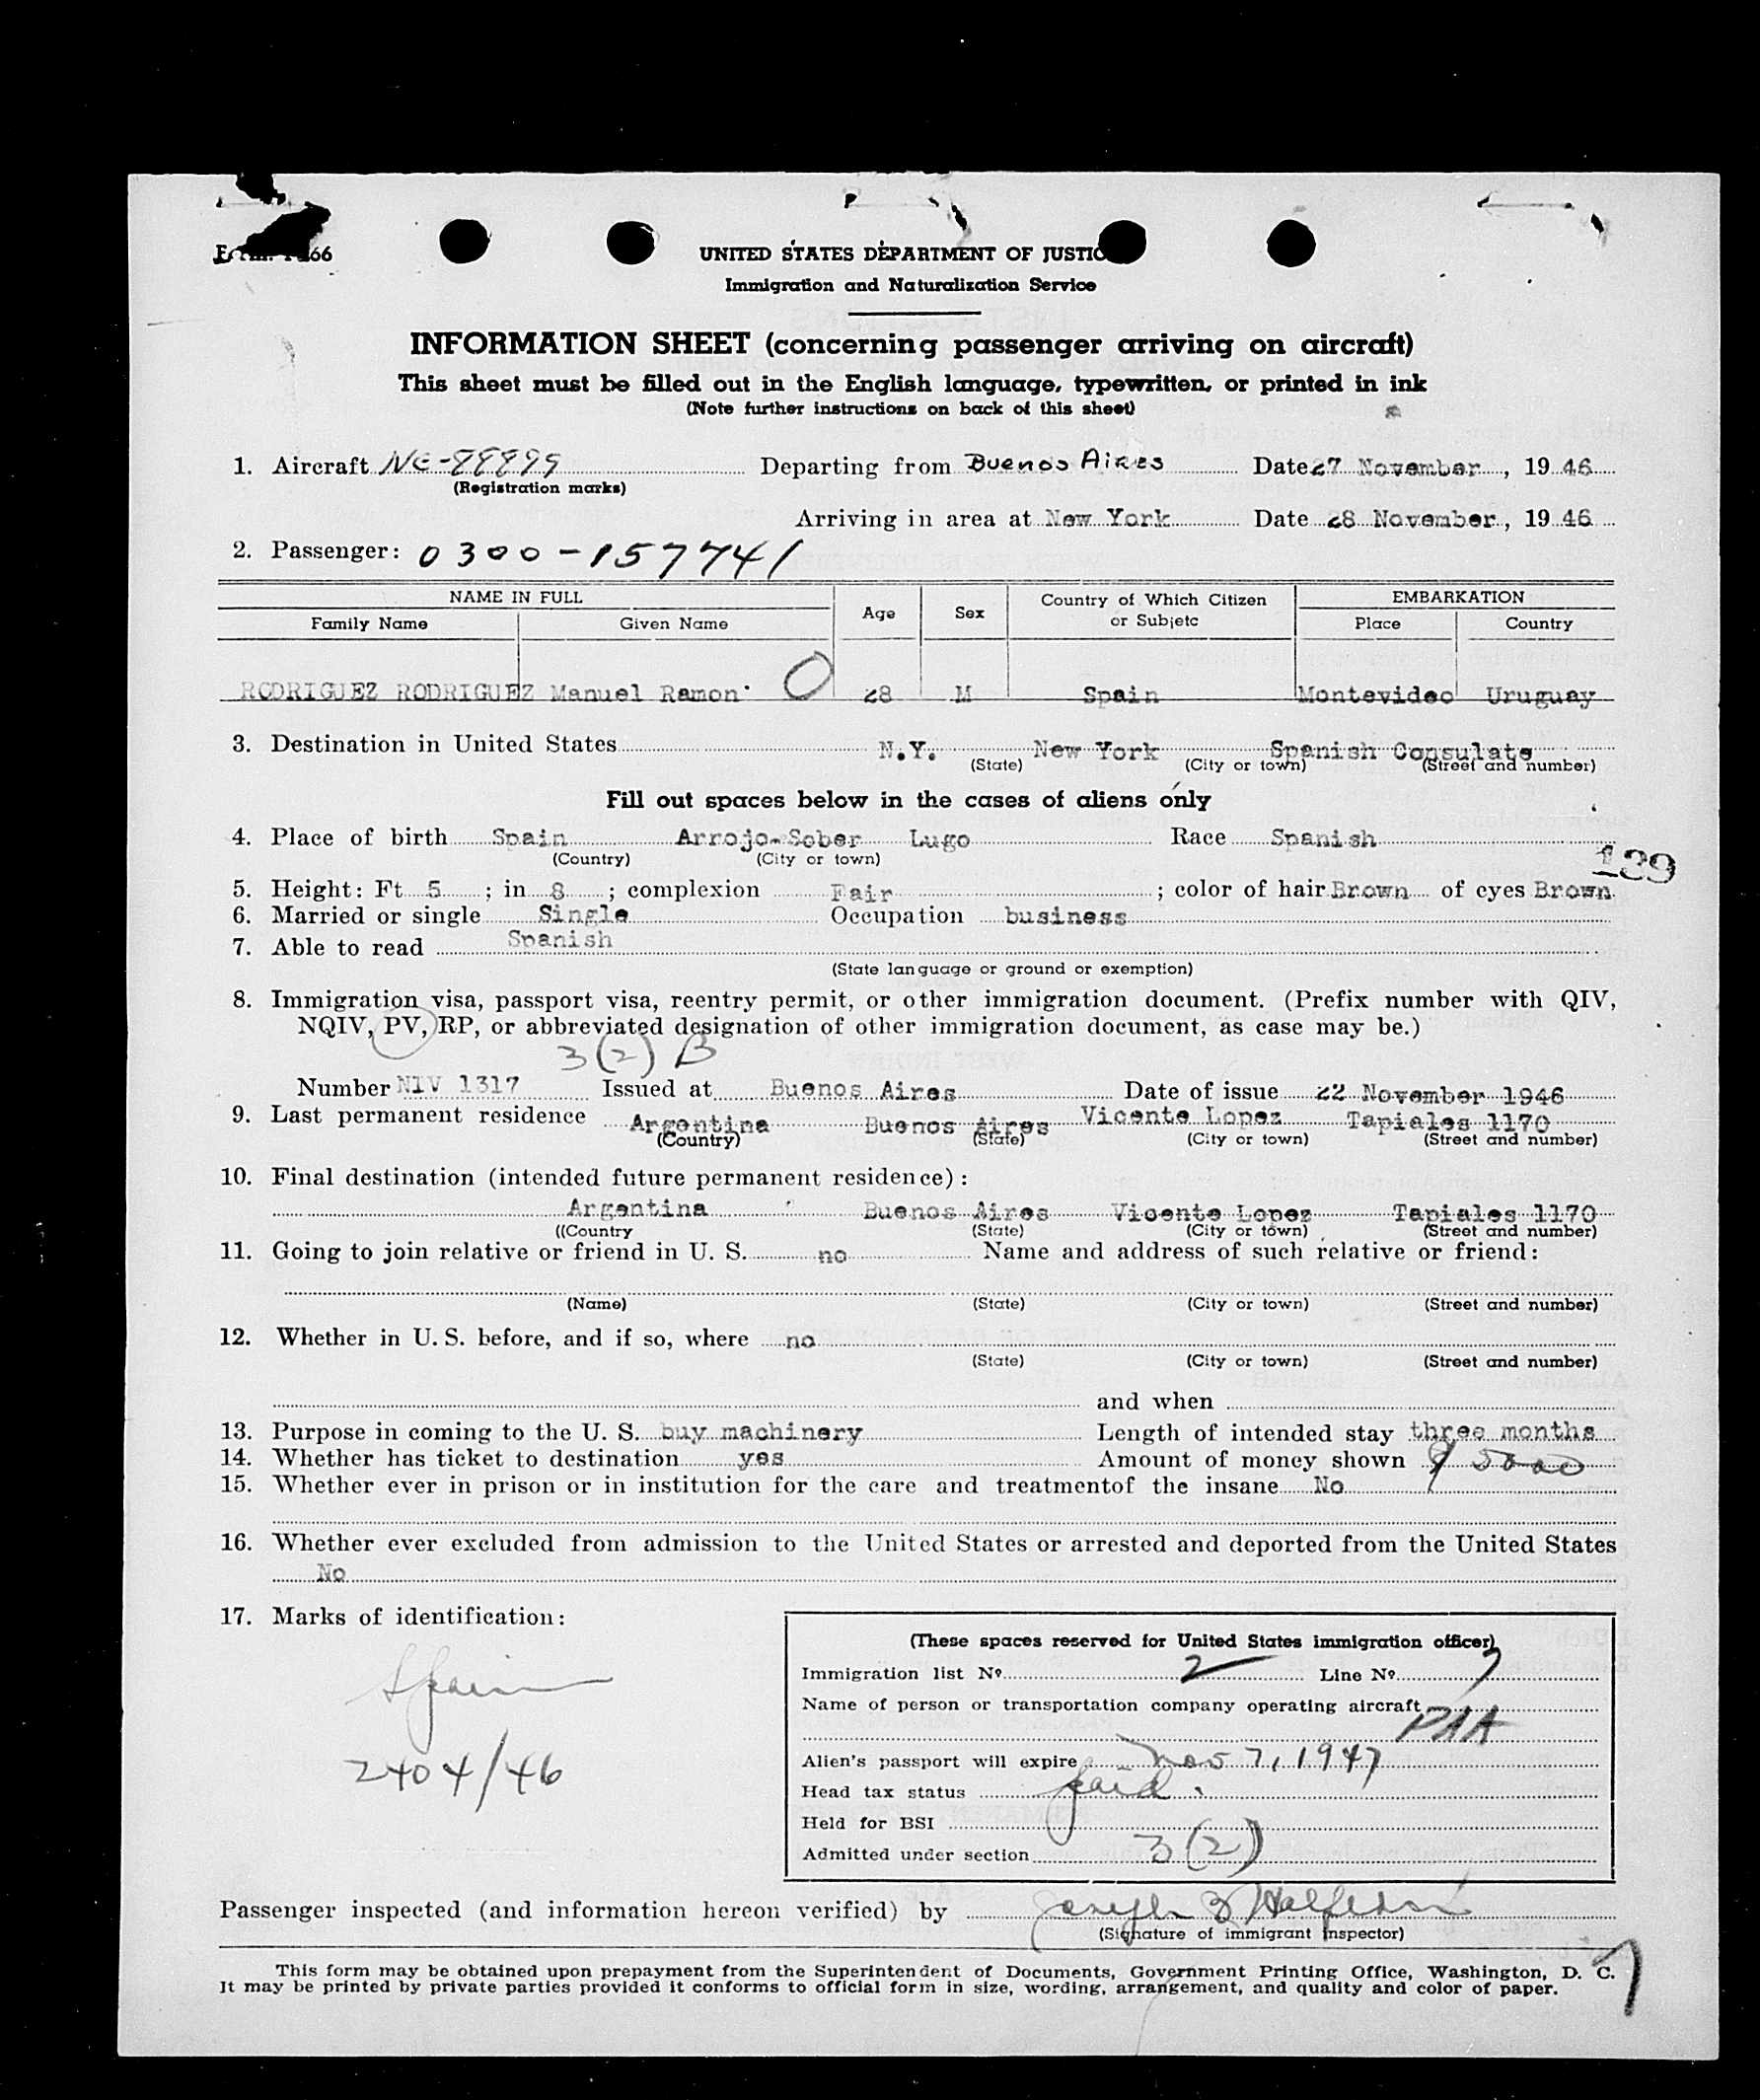 UNITED STATES DEPARTMENT OF JUSTIC
Immigration and Naturalization Service
INFORMATION SHEET (concerning passenger arriving on aircraft)
This sheet must be filled out in the English language, typewritten, or printed in ink
(Note further instructions on back of this sheet)
1. Aircraft Departing from Buenos Aires Date 27 November, 1946
(Registration marks)
Arriving in area at New York Date 28 November, 1946
2. Passenger: 0300-157741
NAME IN FULL Age Sex Country of Which Citizen or Subjetc EMBARKATION
Family Name Given Name Place Country
RODRIGUEZ RODRIGUEZ Manuel Ramon 28 M Spain Montevideo Uruguay
3. Destination in United States N.Y. New York Spanish Consulate
(State) (City or town) (Street and number)
Fill out spaces below in the cases of aliens only
4. Place of birth Spain Arrojo-Sober Lugo Race Spanish
(Country) (City or town)
139
5. Height: Ft 5 ; in 8 ; complexion Fair ; color of hair Brown of eyes Brown
6. Married or single Single Occupation business
7. Able to read Spanish
(State language or ground or exemption)
8. Immigration visa, passport visa, reentry permit, or other immigration document. (Prefix number with QIV,
NQIV, PV, RP, or abbreviated designation of other immigration document, as case may be.)
3(2) B
Number NIV 1317 Issued at Buenos Aires Date of issue 22 November 1946
9. Last permanent residence Argentina Buenos Aires Vicente Lopez Tapiales 1170
(Country) (State) (City or town) (Street and number)
10. Final destination (intended future permanent residence):
Argentina Buenos Aires Vicente Lopez Tapiales 1170
((Country (State) (City or town) (Street and number)
11. Going to join relative or friend in U. S. no Name and address of such relative or friend:
(Name) (State) (City or town) (Street and number)
12. Whether in U. S. before, and if so, where no
(State) (City or town) (Street and number)
and when
13. Purpose in coming to the U. S. buy machinery Length of intended stay three months
14. Whether has ticket to destination yes Amount of money shown $ 5000
15. Whether ever in prison or in institution for the care and treatmentof the insane No
16. Whether ever excluded from admission to the United States or arrested and deported from the United States
No
17. Marks of identification:
Spain
2404/46
(These spaces reserved for United States immigration officer)
Immigration list No. 2 Line No. 7
Name of person or transportation company operating aircraft
PAA
Alien's passport will expire Nov 7, 1947
Head tax status paid.
Held for BSI
Admitted under section 3(2)
Passenger inspected (and information hereon verified) by Joseph
(Signature of immigrant inspector)
This form may be obtained upon prepayment from the Superintendent of Documents, Government Printing Office, Washington, D. C.
It may be printed by private parties provided it conforms to official form in size, wording, arrangement, and quality and color of paper.
7